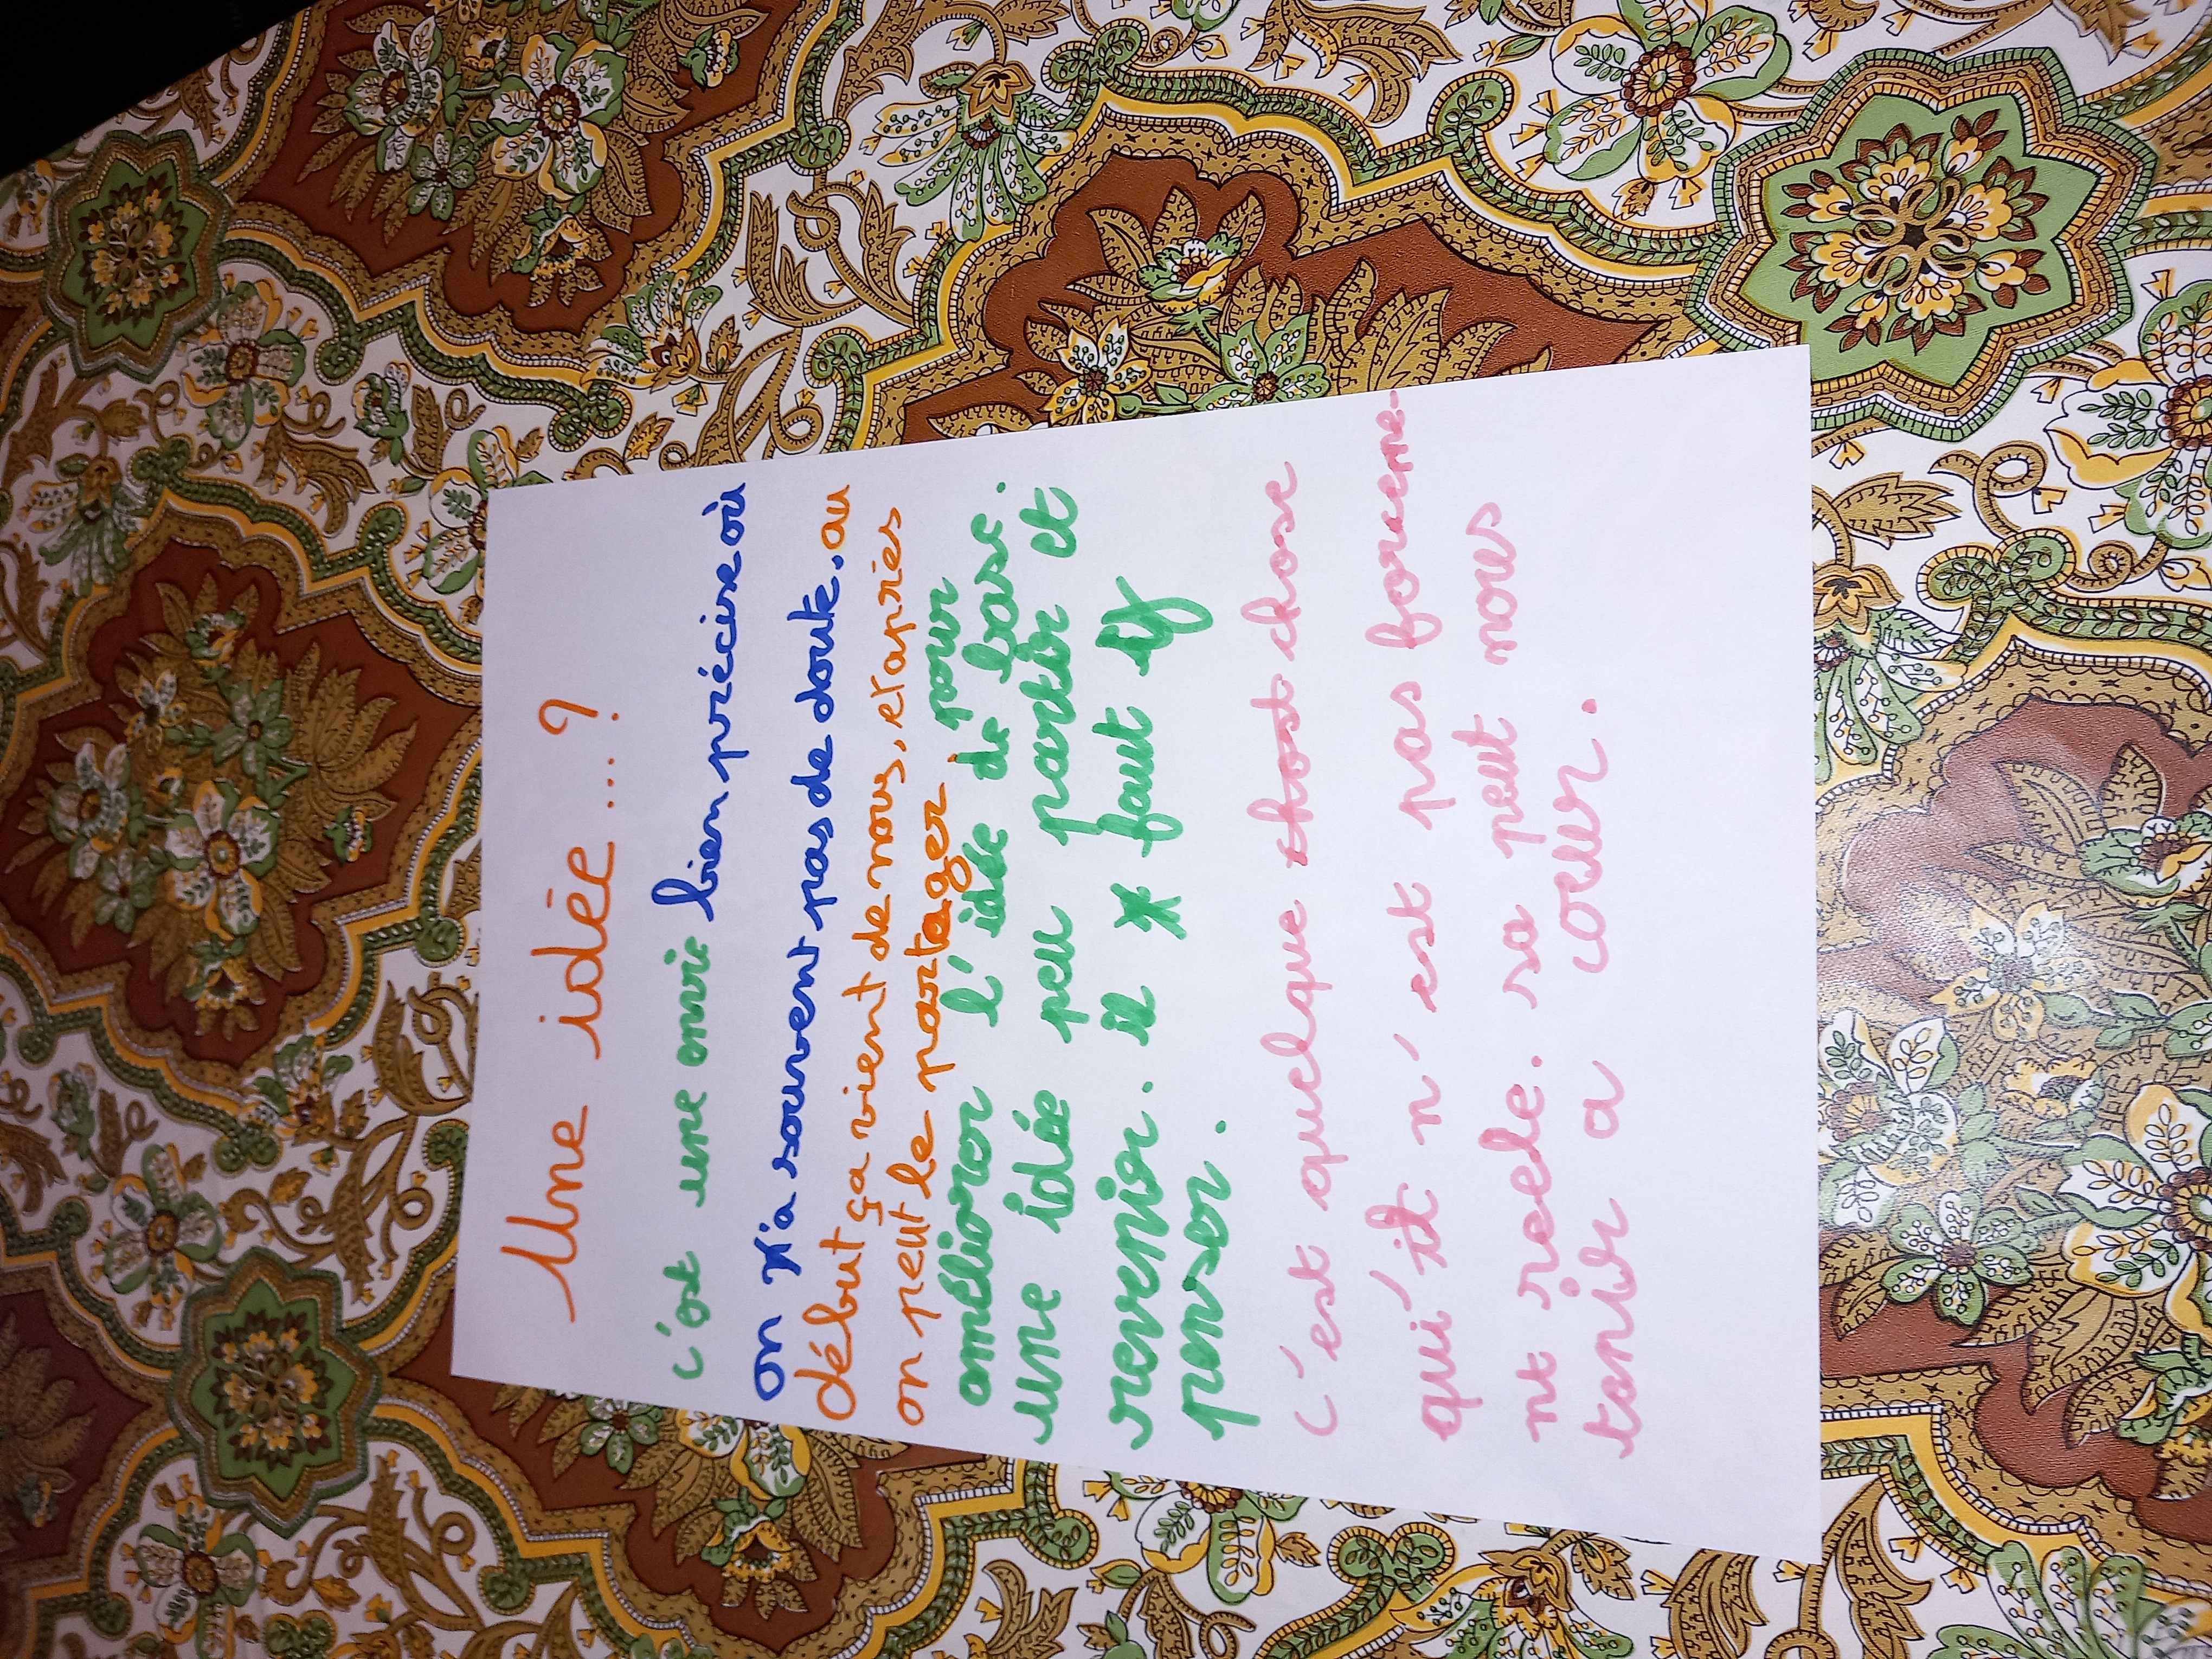 Une idée...?
c'est une envie bien précise où
on n'a souvent pas de doute. au
début ça vient de nous, et après
on peut le partager, pour
améliorer l'idée de base.
une idée peu partir et
revenir. il faut y
penser.
c'est quelque chose
qui n'est pas forceme-
nt reele. sa peut nous
tenir a cœur.